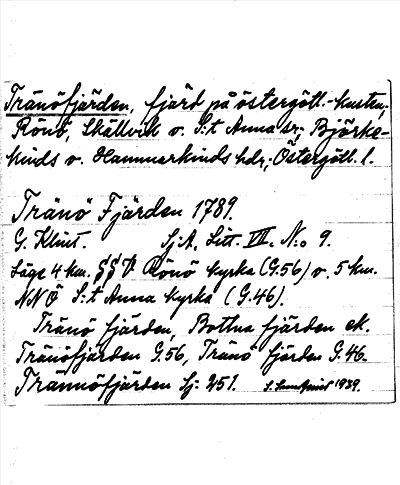 Tränöfjärden, fjärd på östergötl.-kusten;
Rönö, Skällvik o. S:t Anna sr; Björke-
kinds o. Hammarkinds hdr; Östergötl. l.
Tränö Fjärden 1789.
G. Klint. Sj.A. Litt. VII. N:o 9.
Läge 4 km. SSV Rönö kyrka (G.56) o. 5 km.
NNÖ S:t Anna kyrka (G.46).
Tränö fjärden, Bottna fjärden ek.
Tränöfjärden G.56, Tränö fjärden G.46.
Trännöfjärden Sj: 251. 1939.